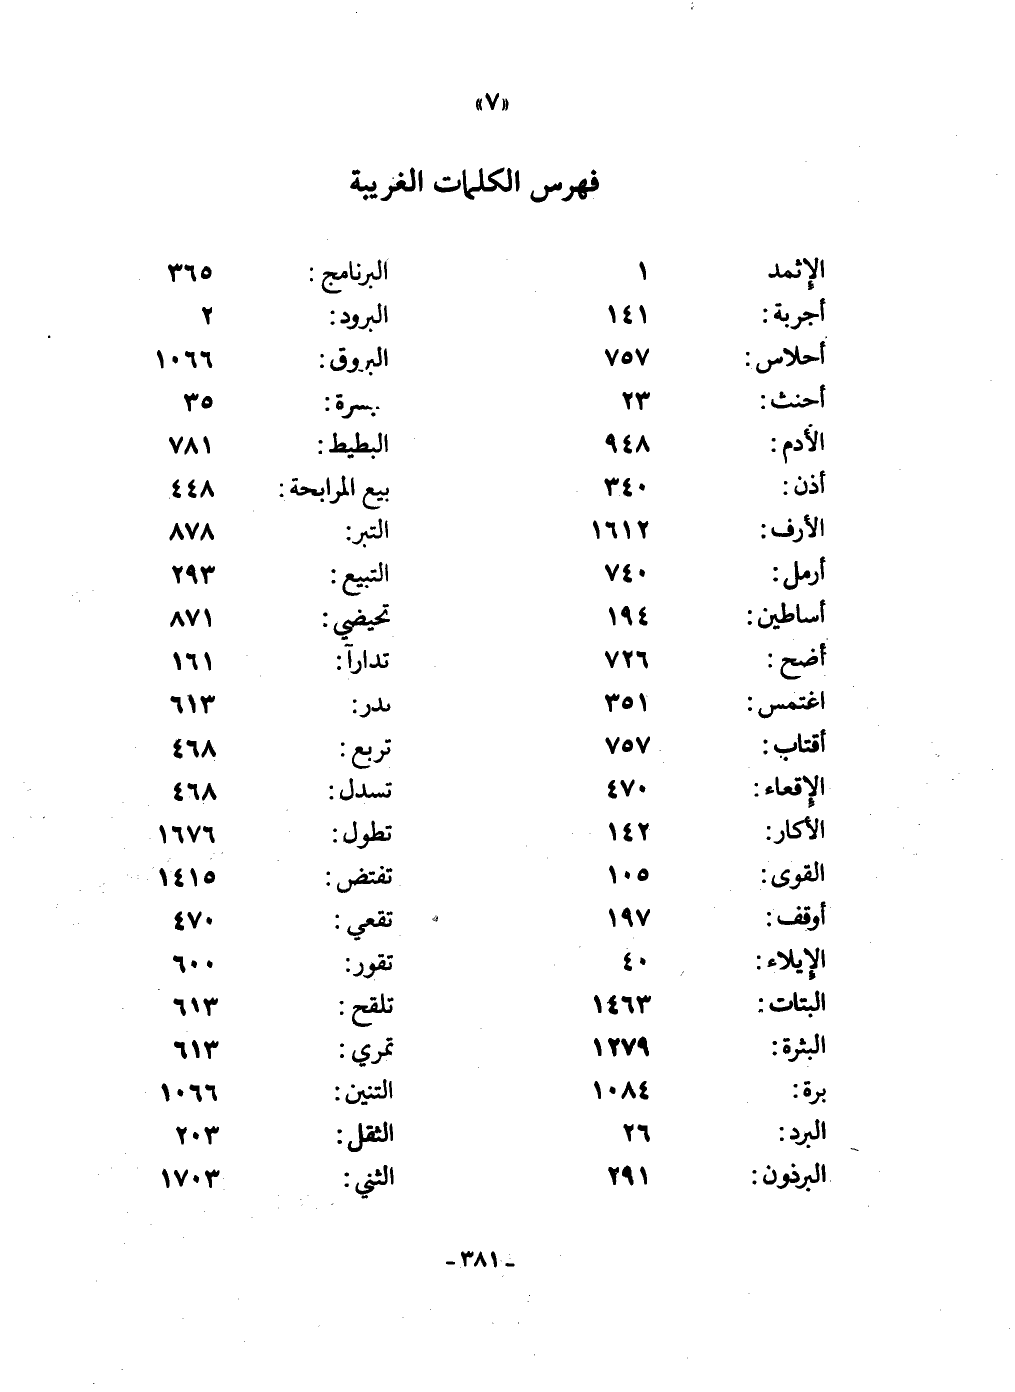 «٧»
فهرس الكلمات الغريبة
الإثمد ١
أجربة: ١٤١
أحلاس: ٧٥٧
أحنث: ٢٣
الأدم: ٩٤٨
أذن: ٣٤٠
الأرف: ١٦١٢
أرمل: ٧٤٠
أساطين: ١٩٤
أضح: ٧٢٦
اغتمس: ٣٥١
أقتاب: ٧٥٧
الإقعاء: ٤٧٠
الأكار: ١٤٢
القوى: ١٠٥
أوقف: ١٩٧
الإيلاء: ٤٠
البتات: ١٤٦٣
البثرة: ١٢٧٩
برة: ١٠٨٤
البرد: ٢٦
البرذون: ٢٩١
البرنامج: ٣٦٥
البرود: ٢
البروق: ١٠٦٦
بسرة: ٣٥
البطيط: ٧٨١
بيع المرابحة: ٤٤٨
التبر: ٨٧٨
التبيع: ٢٩٣
تحيضي: ٨٧١
تدارآ: ١٦١
تدر: ٦١٣
تربع: ٤٦٨
تسدل: ٤٦٨
تطول: ١٦٧٦
تفتض: ١٤١٥
تقعي: ٤٧٠
تقور: ٦٠٠
تلقح: ٦١٣
تمري: ٦١٣
التنين: ١٠٦٦
الثقل: ٢٠٣
الثني: ١٧٠٣
- ٣٨١ -